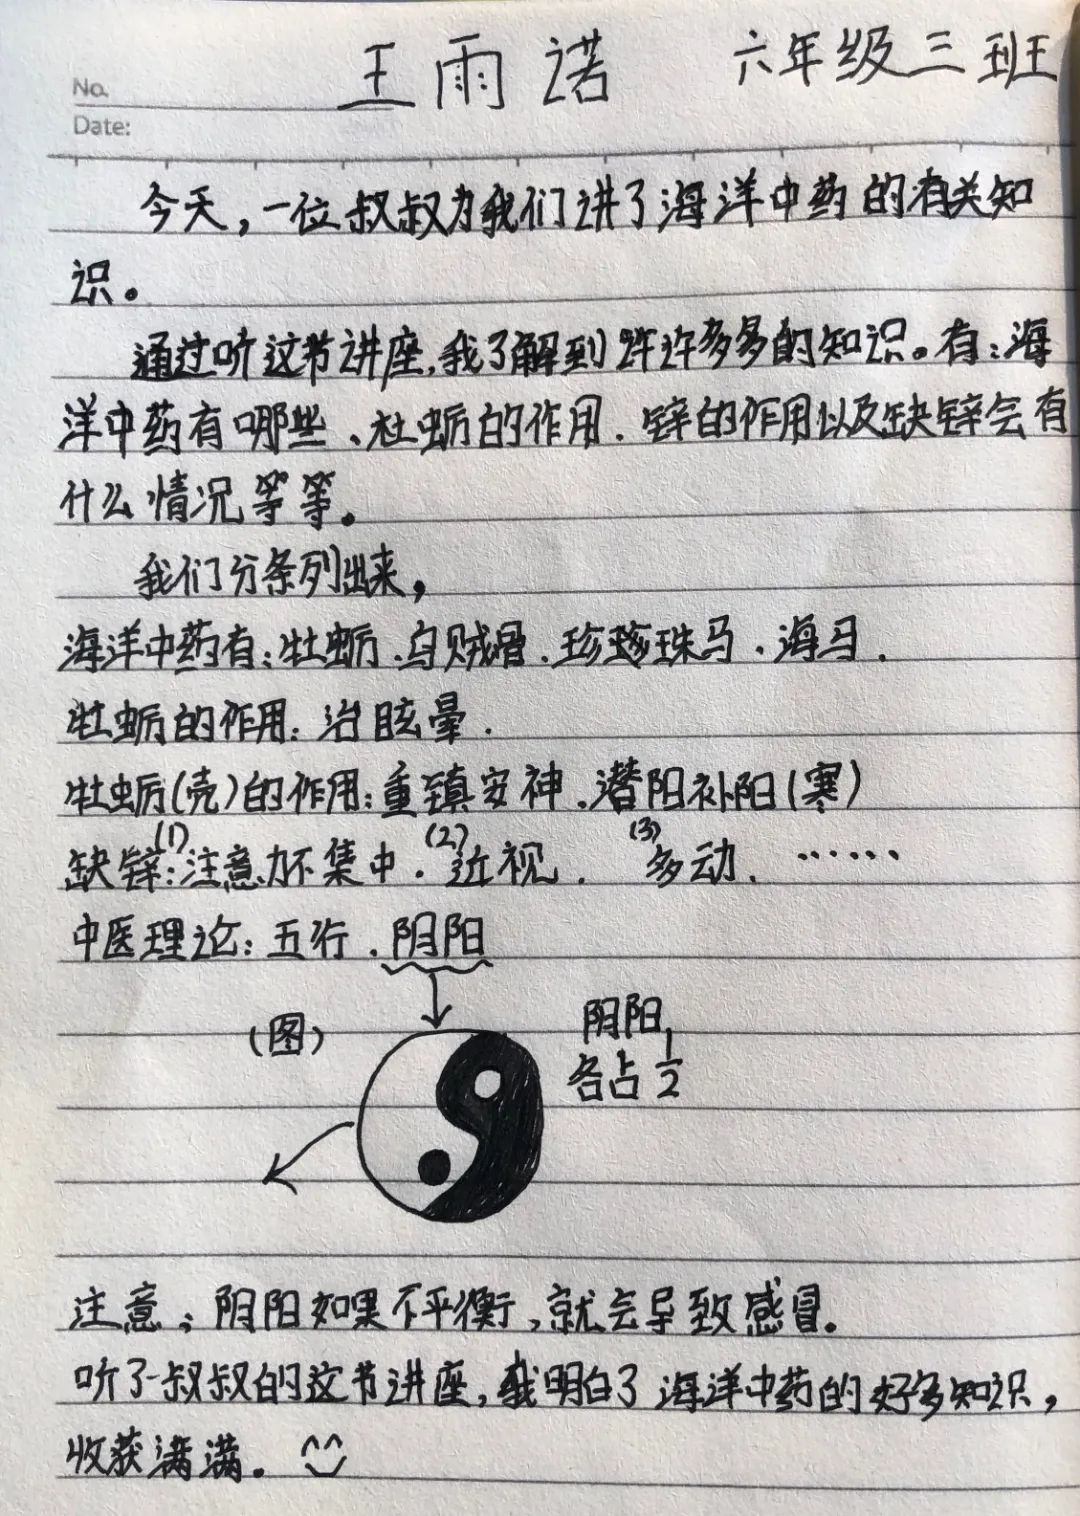 王雨诺 六年级三班
No.
Date:
今天，一位叔叔为我们讲了海洋中药的有关知
识。
通过听这节讲座，我了解到许许多多的知识。有：海
洋中药有哪些、牡蛎的作用、锌的作用以及缺锌会有
什么情况等等。
我们分条列出来，
海洋中药有：牡蛎、乌贼骨、珍珠马、海马.
牡蛎的作用：治眩晕.
牡蛎(壳)的作用：重镇安神、潜阳补阳(寒)
缺锌：(1)注意力不集中.(2)近视.(3)多动.……
中医理论：五行、阴阳
(图)
阴阳
各占1/2
注意；阴阳如果不平衡，就会导致感冒。
听了叔叔的这节讲座，我明白了海洋中药的好多知识，
收获满满。